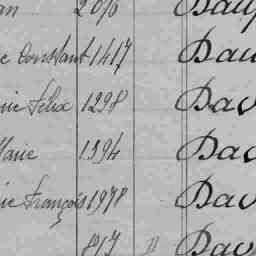 an 2076 Dau
e Constant 1417 Dau
rie Felix 1298 Dav
Marie 1394 Dav
rie François 1978 Dav
817 " Dav